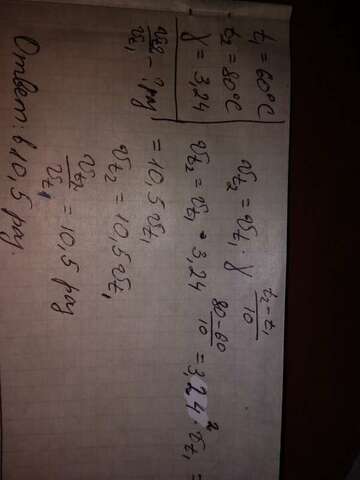 t₁ = 60°C
t₂ = 80°C
γ = 3,24
υt₂/υt₁ - ? раз
υt₂ = υt₁ · γ^((t₂ - t₁)/10)
υt₂ = υt₁ · 3,24^((80 - 60)/10) = 3,24² · υt₁ =
= 10,5 υt₁
υt₂ = 10,5 υt₁
υt₂/υt₁ = 10,5 раз
Ответ: в 10,5 раз.